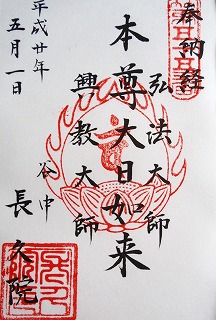 奉納経
弘法大師
本尊大日如来
興教大師
谷中
長久院
平成廿年
五月一日